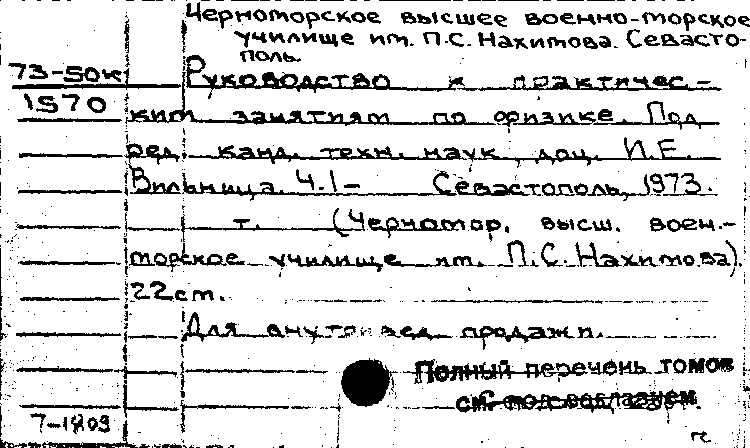 Черноморское высшее военно-морское
училище им. П.С. Нахимова. Севасто-
поль.
73-50к
1570
Руководство к практичес-
ким занятиям по физике. Под
ред. канд. техн. наук, доц. И.Е.
Вильница. Ч.1- Севастополь, 1973.
т. (Черномор. высш. воен.-
морское училище им. П.С. Нахимова).
22см.
Для внутривед. продажи.
Полный перечень томов
см. под заглавием